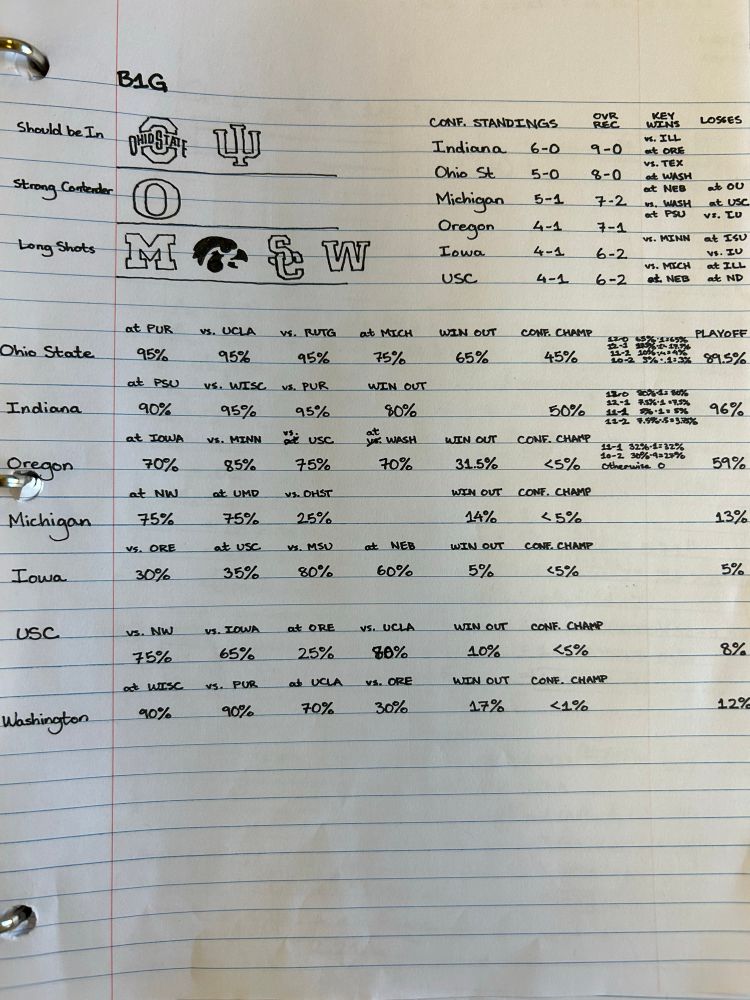 B1G
Should be In OHIO STATE IU
Strong Contender O
Long Shots M SC W
CONF. STANDINGS OVR REC KEY WINS LOSSES
Indiana 6-0 9-0 vs. ILL at ORE
Ohio St 5-0 8-0 vs. TEX at WASH
Michigan 5-1 7-2 at NEB vs. WASH at OU at USC
Oregon 4-1 7-1 at PSU vs. IU
Iowa 4-1 6-2 vs. MINN at ISU vs. IU
USC 4-1 6-2 vs. MICH at NEB at ILL at ND
at PUR vs. UCLA vs. RUTG at MICH WIN OUT CONF. CHAMP PLAYOFF
Ohio State 95% 95% 95% 75% 65% 45% 89.5%
13-0 65%·1=65%
12-1
11-2
10-2
at PSU vs. WISC vs. PUR WIN OUT
Indiana 90% 95% 95% 80% 50% 96%
13-0 80%·1=80%
12-1 7.5%·1=7.5%
11-1 5%·1=5%
11-2 7.5%·.5=3.75%
at IOWA vs. MINN vs. USC at WASH WIN OUT CONF. CHAMP
Oregon 70% 85% 75% 70% 31.5% <5% 59%
11-1 32%·1=32%
10-2 30%·9=27%
otherwise 0
at NW at UMD vs. OHST WIN OUT CONF. CHAMP
Michigan 75% 75% 25% 14% <5% 13%
vs. ORE at USC vs. MSU at NEB WIN OUT CONF. CHAMP
Iowa 30% 35% 80% 60% 5% <5% 5%
vs. NW vs. IOWA at ORE vs. UCLA WIN OUT CONF. CHAMP
USC 75% 65% 25% 80% 10% <5% 8%
at WISC vs. PUR at UCLA vs. ORE WIN OUT CONF. CHAMP
Washington 90% 90% 70% 30% 17% <1% 12%